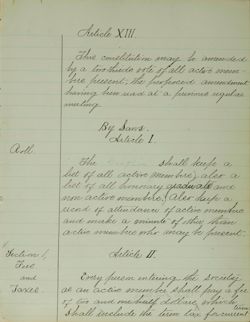 Article XIII.
This constitution may be amended
by a two thirds vote of all active mem-
bers present; the proposed amendment
having been read at a previous regular
meeting.
By Laws.
Article I.
Roll.
The shall keep a
list of all active members, also a
list of all honorary graduate and
non active members. Also keep a
record of attendance of active members
and make a minute of other than
active members who may be present.
Section 1,
Fees
and
Taxes.
Article II.
Every person entering the society
as an active member shall pay a fee
of two and one half dollars, which
shall include the term tax for current
term